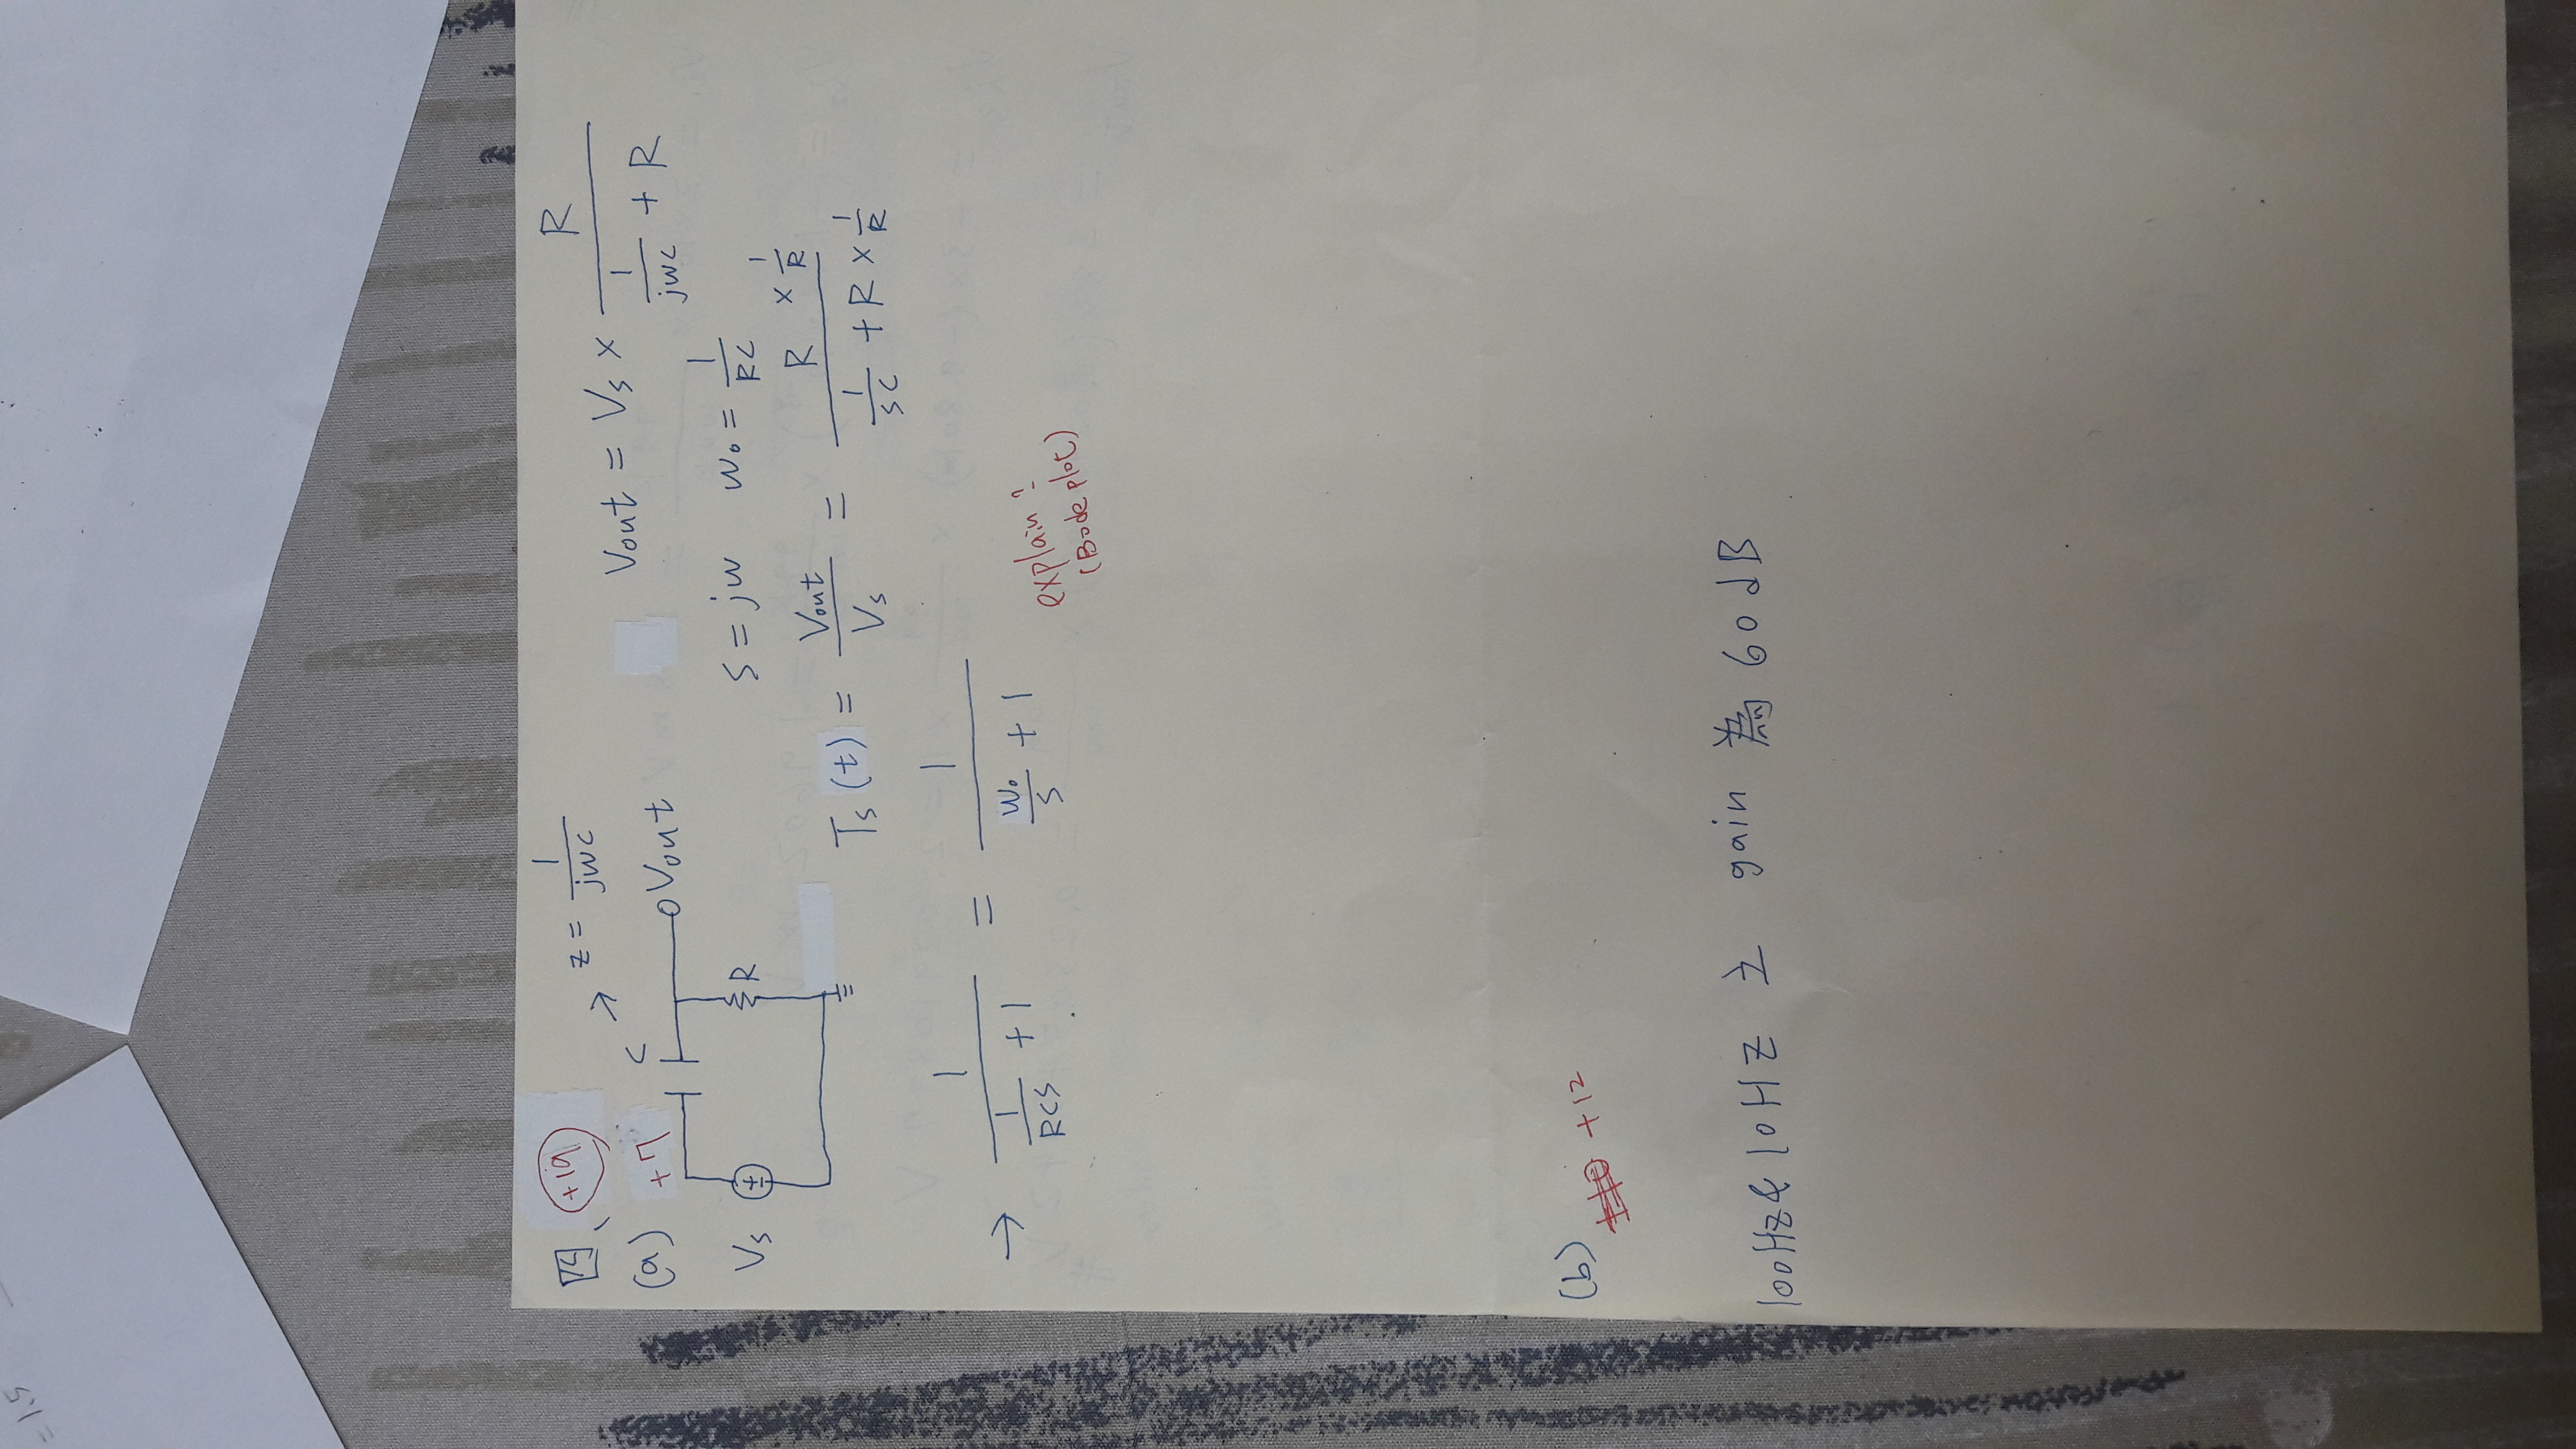 = 1.5
四、 +19
(a) +7
C → z = 1/jwc
Vs
Vout
R
Vout = Vs × R / (1/jwc + R)
s = jw w₀ = 1/RC
Ts(t) = Vout/Vs = R × 1/R / (1/sc + R × 1/R)
→ 1 / (1/RCS + 1) = 1 / (w₀/s + 1)
explain?
(Bode plot)
(b) +12
100Hz & 10HZ 之 gain 為 60 dB